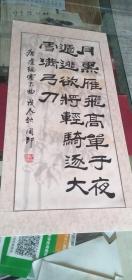 月黑雁飛高單于夜
遁逃欲將輕騎逐大
雪滿弓刀
唐盧綸塞下曲